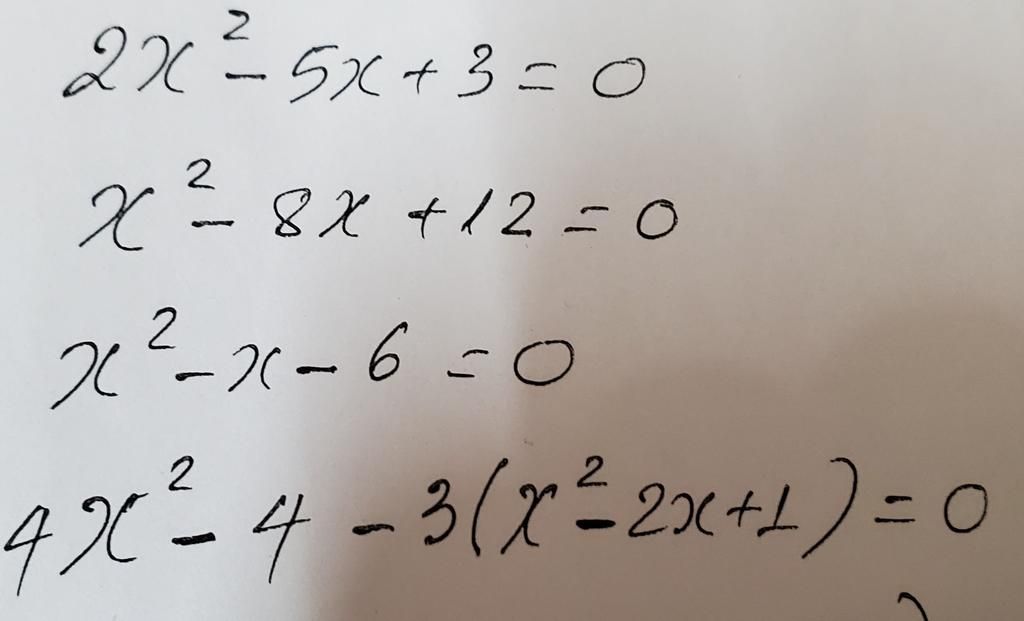 2x² - 5x + 3 = 0
x² - 8x + 12 = 0
x² - x - 6 = 0
4x² - 4 - 3(x² - 2x + 1) = 0